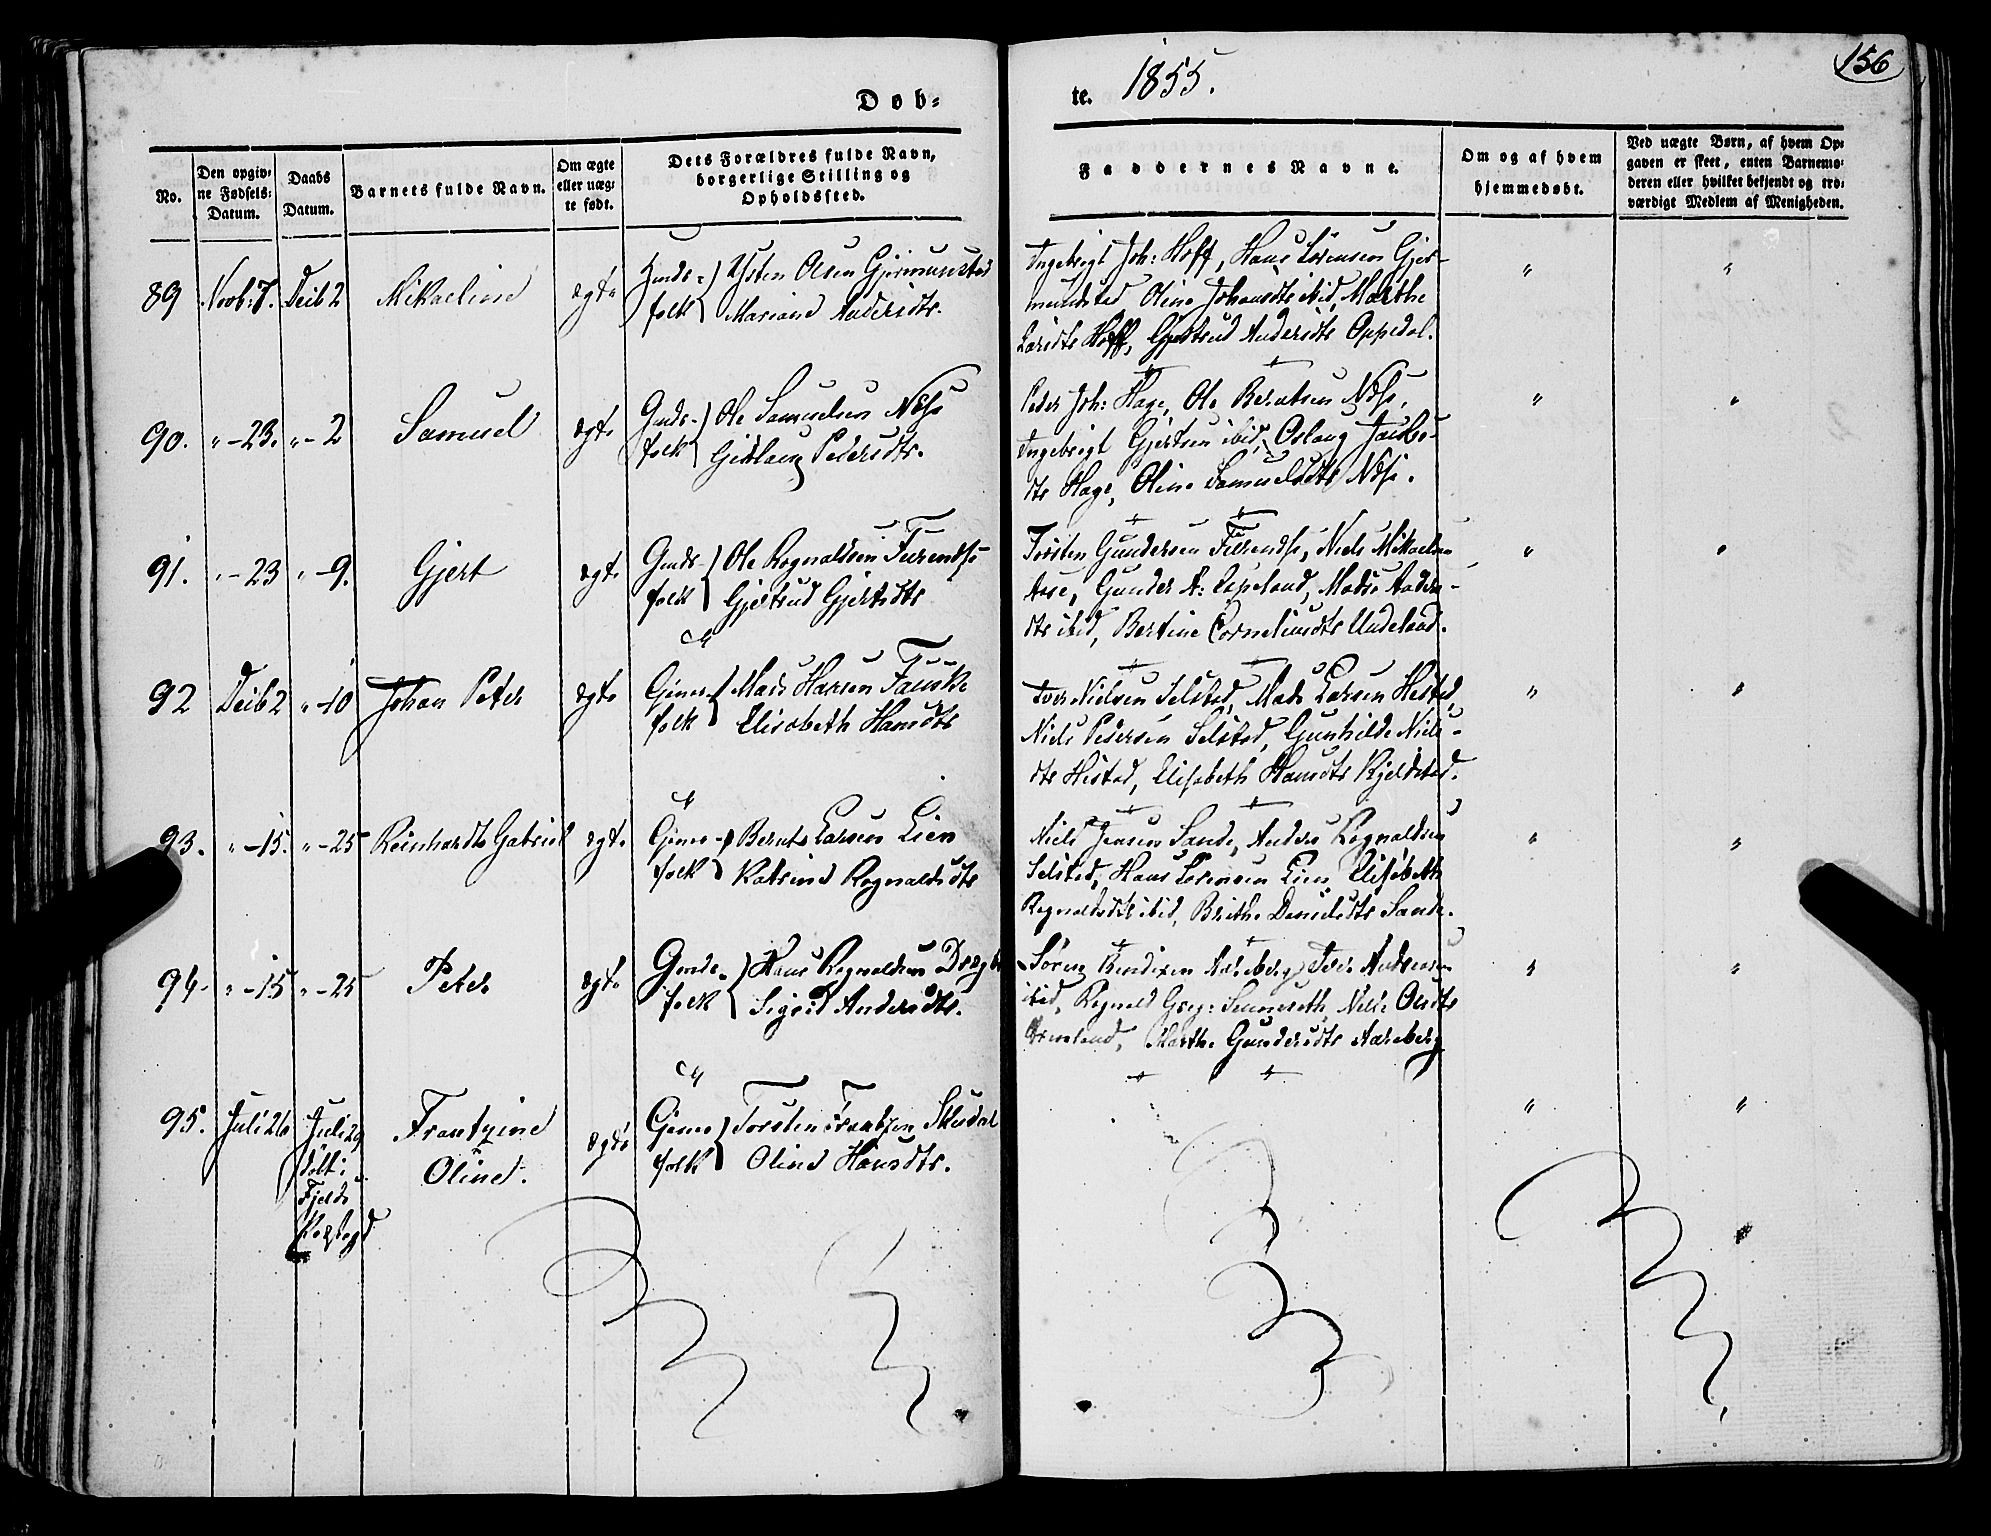 156
Døb-
te. 1855.
No.
Den opgiv-
ne Fødsels-
Datum.
Daabs
Datum.
Barnets fulde Navn.
Om ægte
eller uæg-
te født.
Dets Forældres fulde Navn,
borgerlige Stilling og
Opholdssted.
Faddernes Navne.
Om og af hvem
hjemmedøbt.
Ved uægte Børn, af hvem Op-
gaven er skeet, enten Barnemo-
deren eller hvilket bekjendt og tro-
værdigt Medlem af Menigheden.
89 Novb: 7. Deib 2 Mikaeline ægte Olsen
folk Mariane Andersdtr.
Ingebrigt Joh: Hoff, Hans Sørensen Gjer-
mundstad, Oline ibid, Marthe
Larsdtr Hoff, Gjertrud Andersdtr Oppedal.
90. " - 23. " - 2 Samuel ægte Gmds- Ole Samuelsen
folk Pedersdtr.
Peder Joh: Hage, Ole Berntsen
Ingebrigt Gjertsen ibid, Oslaug
dtr Hage, Oline Samuelsdtr
91. " - 23 " - 9. Gjert ægte Gmds- Ole Rognaldsen
folk Gjertrud Gjertsdtr
Torsten Gundersen Niels Mikaelsen
Aase, Gunder A: Espeland,
dtr ibid, Bertine Corneliusdtr Undeland.
92 Deib 2 " - 10 Johan Peter ægte Mads Hansen Fauske
folk Elisabeth Hansdtr
Iver Nielsen Selstad, Mads Larsen Hestad,
Niels Pedersen Selstad, Gunhilde Niels-
dtr Hestad, Elisabeth Hansdtr Kjeldstad.
93. " - 15. " - 25 Reinhardt Gabriel ægte Bernt Larsen Lien
folk Katrine Rognaldsdtr
Niels Jensen Sande, Anders Rognaldsen
Selstad, Hans Sørensen Lien, Elisabeth
Rognaldsdtr ibid, Brithe Danielsdtr Sande.
94. " - 15 " - 25 Peter ægte Gmds- Hans Rognaldsen
folk Sigrid Andersdtr.
Søren Bendixen Aareberg, Iver Andreasen
ibid, Rognald Greg: Olsdtr
Marthe Gundersdtr Aareberg
95. Juli 26 Juli 29 Frantzine ægte Torsten Frantzen
folk Oline Hansdtr.
døbt i
Oline.
Fjelds